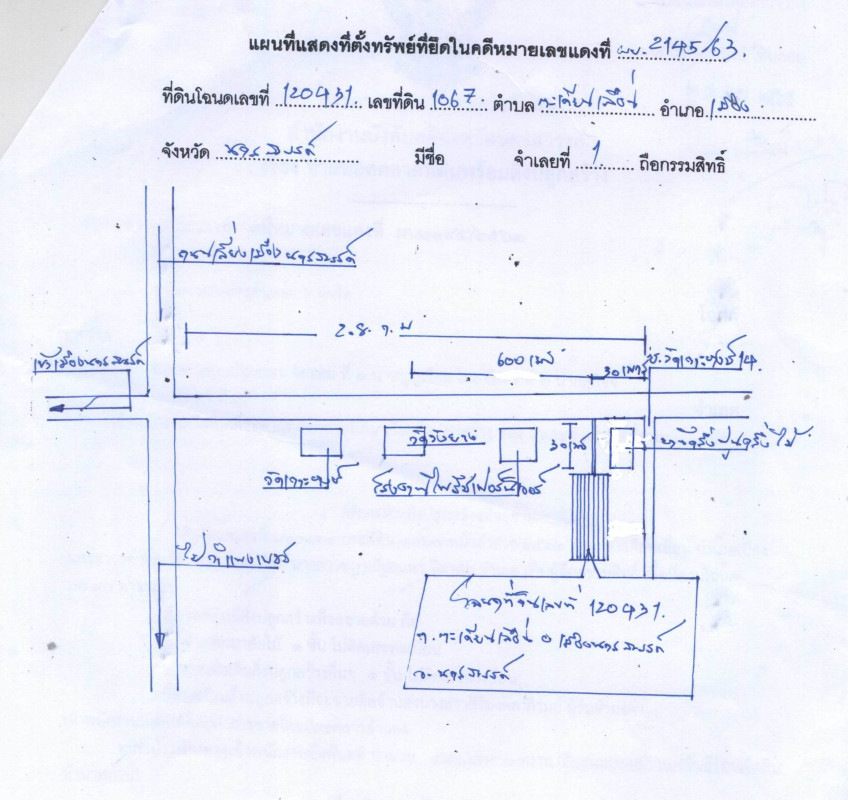 แผนที่แสดงที่ตั้งทรัพย์ที่ยึดในคดีหมายเลขแดงที่ ผบ. 2145/63.
ที่ดินโฉนดเลขที่ 120431. เลขที่ดิน 1067. ตำบล ตะเคียนเลื่อน อำเภอ เมือง
จังหวัด นครสวรรค์ มีชื่อ จำเลยที่ 1 ถือกรรมสิทธิ์
ถนนเลี่ยงเมืองนครสวรรค์
2.8 ก.ม
เข้าเมืองนครสวรรค์
600 เมตร
30 เมตร
ซ.วัดเกาะหงษ์ 14.
วัดวังยาง
30 เมตร
วัดเกาะหงษ์
ไปกำแพงเพชร
โฉนดที่ดินเลขที่ 120431.
ต. ตะเคียนเลื่อน อ เมืองนครสวรรค์
จ. นครสวรรค์